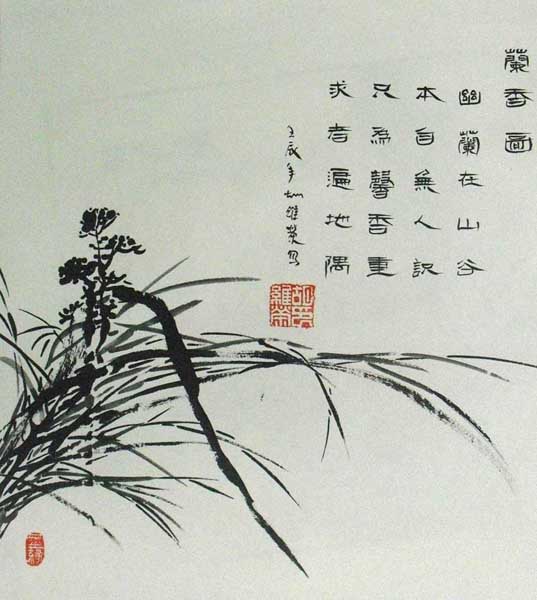 蘭香圖
幽蘭在山谷
本自無人識
只為馨香重
求者遍地隅
壬辰年